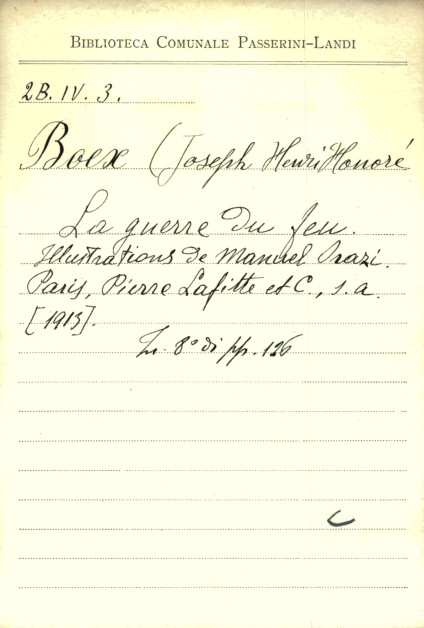 BIBLIOTECA COMUNALE PASSERINI-LANDI
2B. IV. 3.
Boex (Joseph Henri Honoré
La guerre du feu.
Illustrations de Manuel Orazi.
Paris, Pierre Lafitte et C., s. a.
[1913].
In 8° di pp. 126